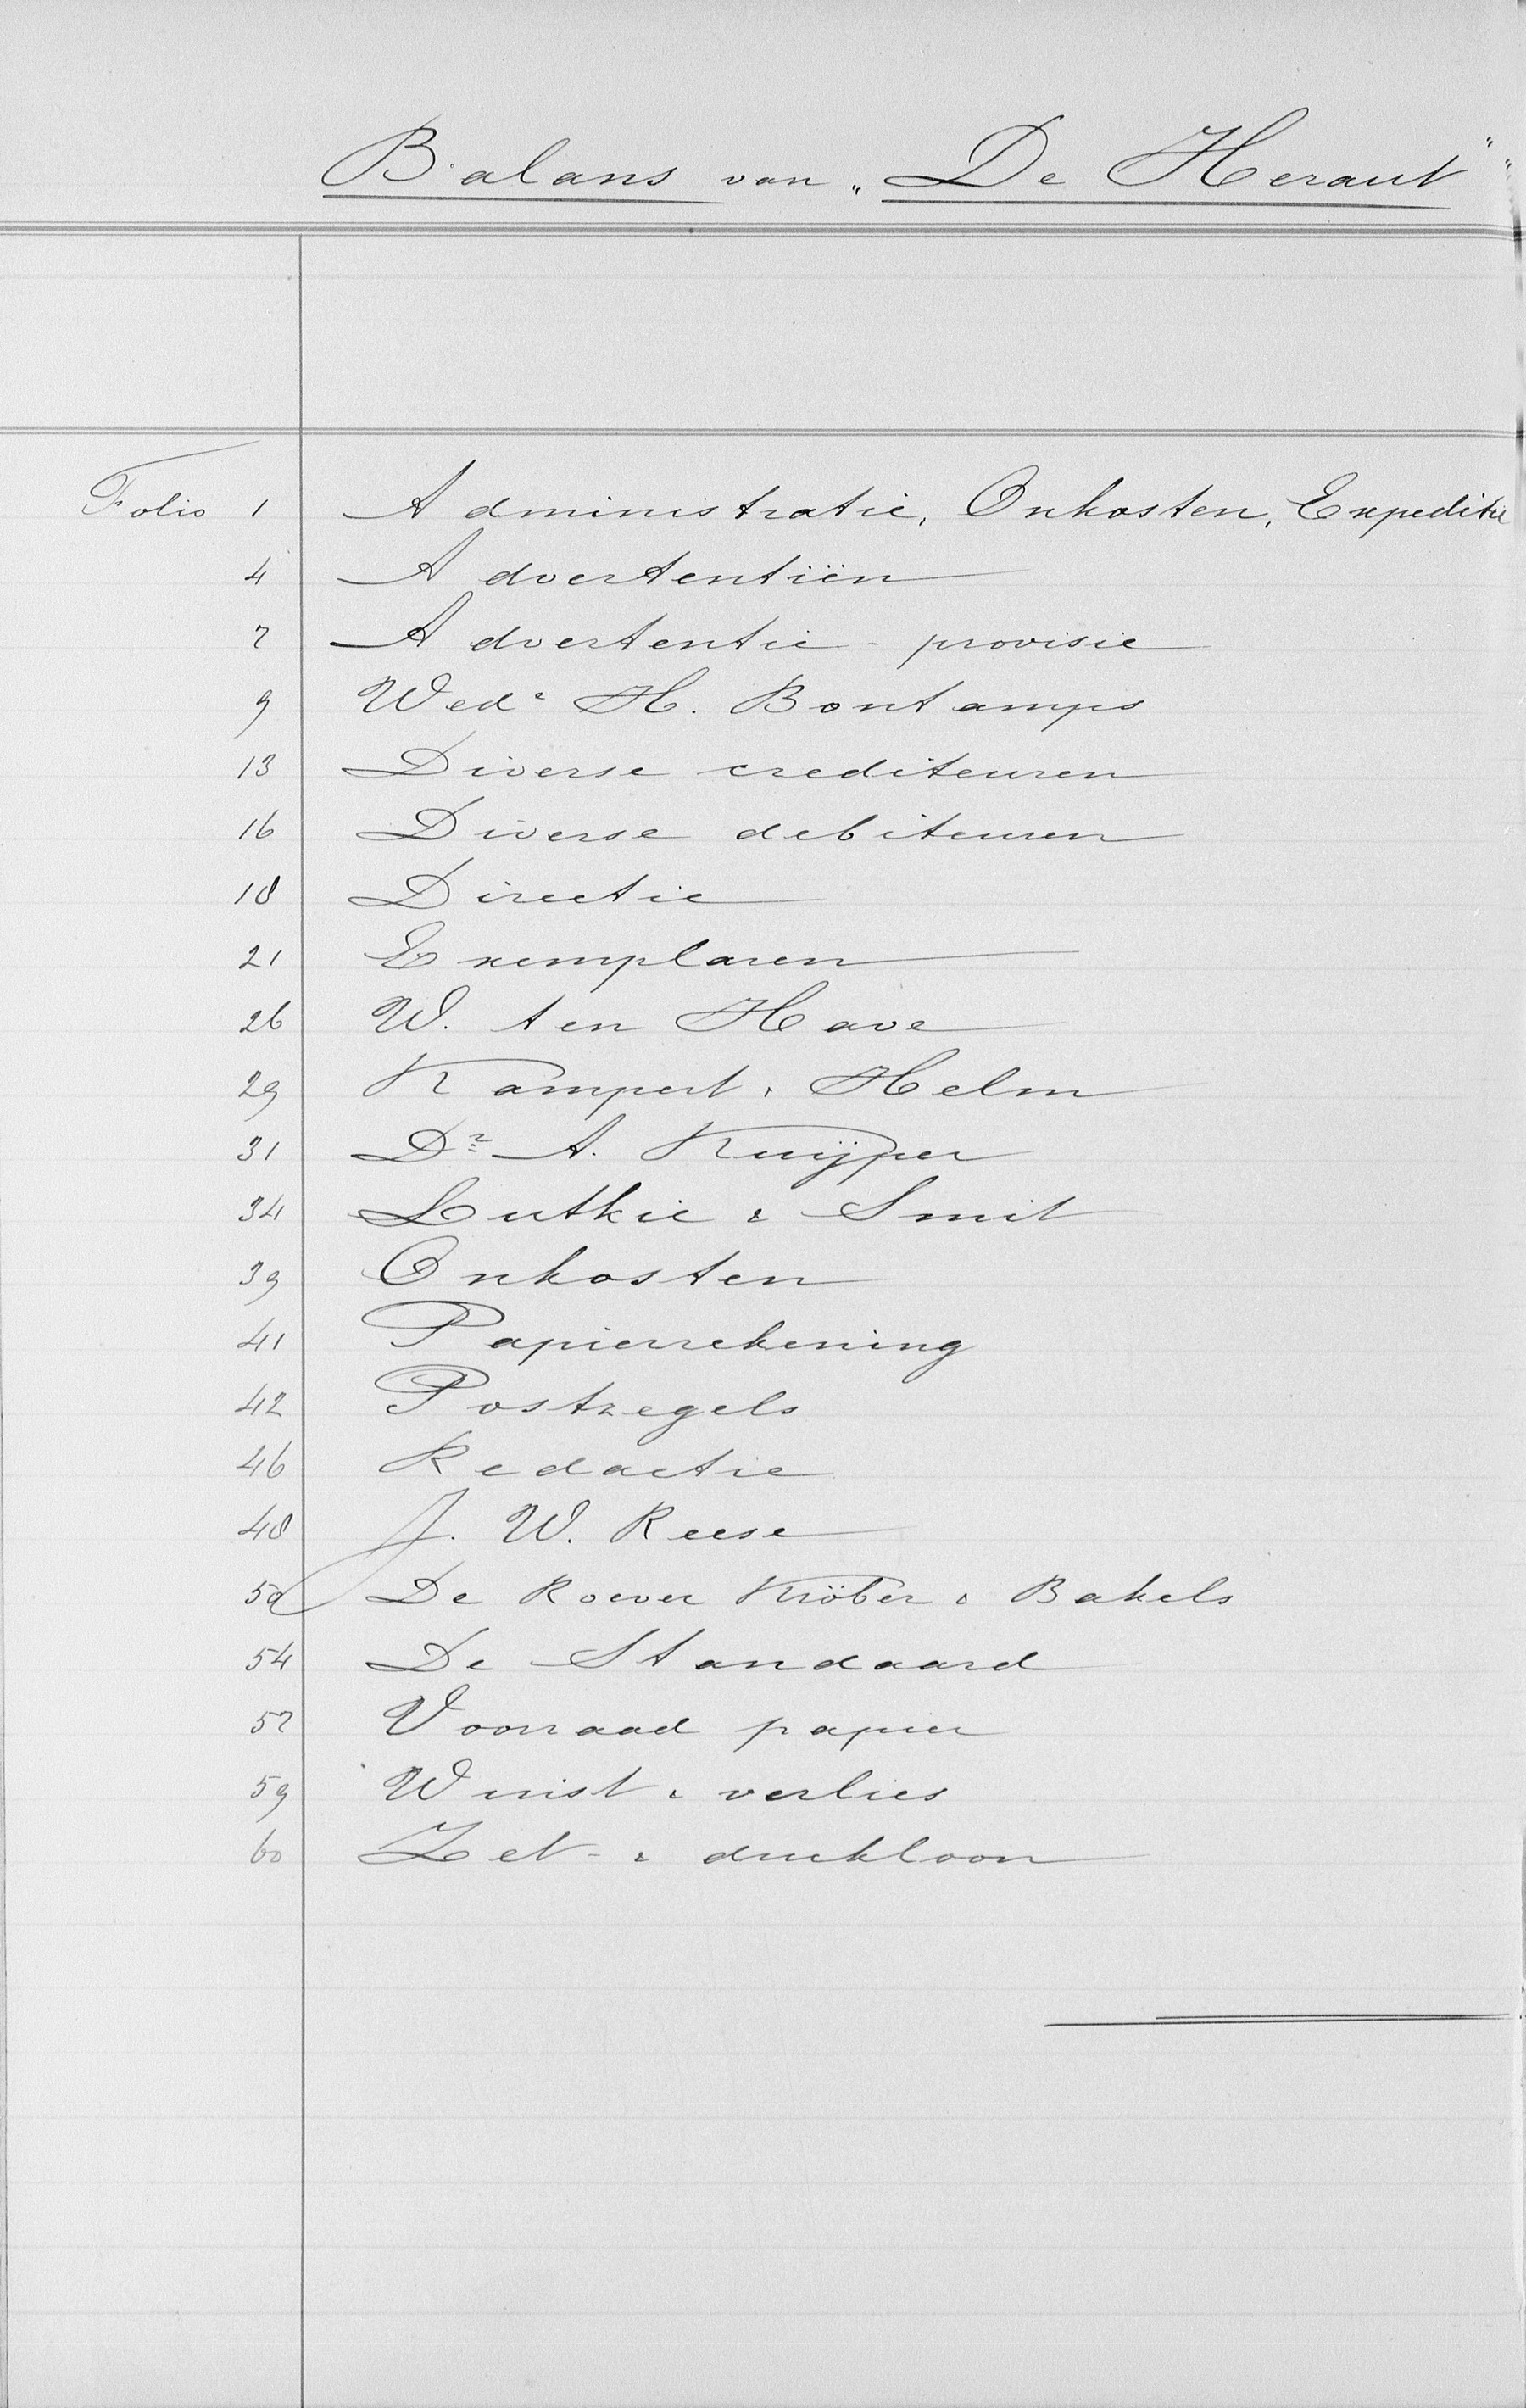 Balans van „De Heraut"
Folio 1 Administratie, Onkosten, Expeditie
4 Advertentiën
7 Advertentie-provisie
9 Wede H. Bontamps
13 Diverse crediteuren
16 Diverse debiteuren
18 Directie
21 Exemplaren
26 W. ten Have
29 Kampert & Helm
31 Dr A. Kuijper
34 Lutkie & Smit
39 Onkosten
41 Papierrekening
42 Postzegels
46 Redactie
48 J. W. Reese
50 De Roever Kröber & Bakels
54 De Standaard
57 Voorraad papier
59 Winst & verlies
60 Zet- & drukloon